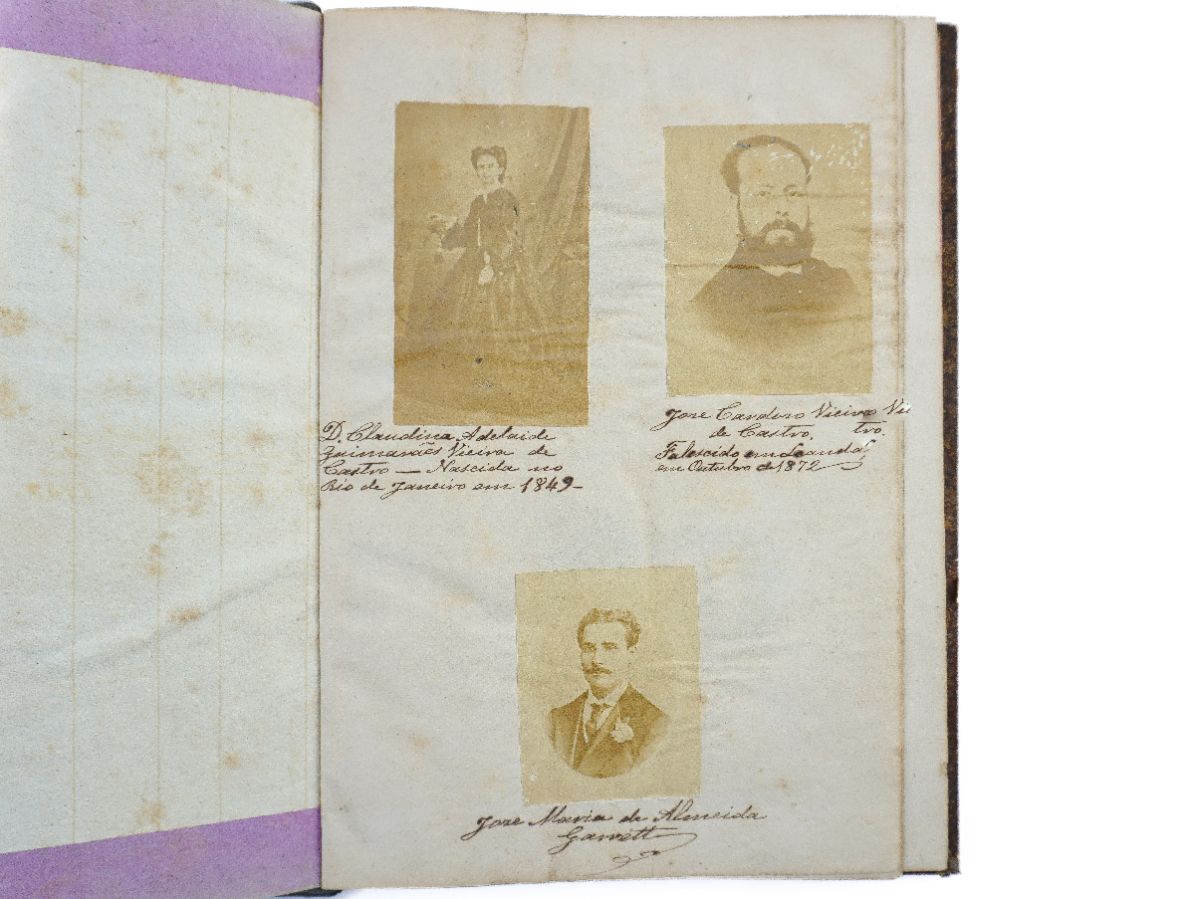 D. Claudina Adelaide
Guimarães Vieira de
Castro — Nascida no
Rio de Janeiro em 1849 -
Jose Cardoso Vieira
de Castro.
Falescido em Loanda,
em Outubro de 1872
Jose Maria de Almeida
Garrett